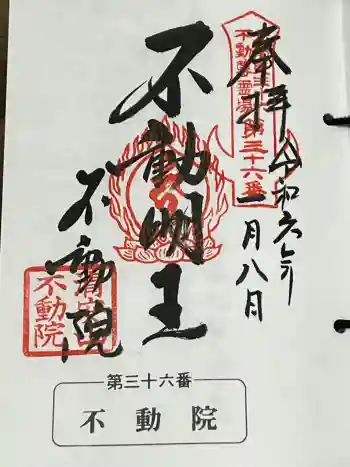 奉拝
令和六年
一月八日
不動尊霊場第三十六番
不動明王
不動院
不動院
第三十六番
不動院